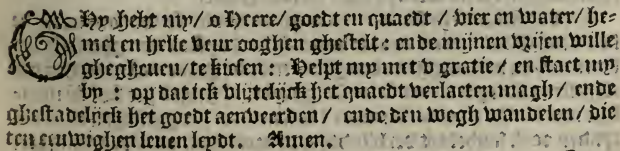 Ghy hebt my/ o Heere/ goedt en quaedt / vier en water/ he-
mel en helle veur ooghen ghestelt: ende mijnen vrijen wille
ghegheuen/ te kiesen: Helpt my met v gratie / en staet my
by : op dat ick blijtelijck het quaedt verlaeten magh / ende
ghestadelijck het goedt aenveerden / ende den wegh wandelen / die
ten eeuwighen leuen leydt. Amen.